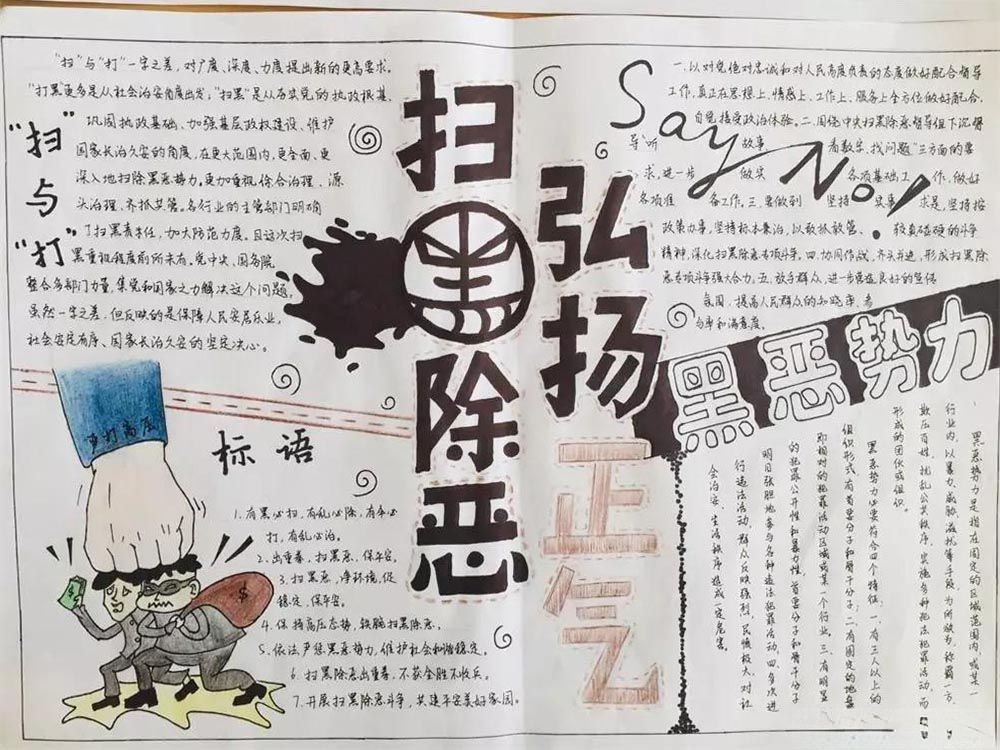 "扫"与"打"一字之差，对广度、深度、力度提出新的更高要求。
"打黑"更多是从社会治安角度出发；"扫黑"是从夯实党的执政根基、
巩固执政基础、加强基层政权建设、维护
国家长治久安的角度，在更大范围内，更全面、更
深入地扫除黑恶势力，更加重视综合治理、源
头治理、齐抓共管。各行业的主管部门明确
了扫黑责任，加大防范力度。且这次扫
黑重视程度前所未有。党中央、国务院
整合多部门力量，集党和国家之力解决这个问题。
虽然一字之差，但反映的是保障人民安居乐业、
社会安定有序、国家长治久安的坚定决心。
"扫"
与
"打"
扫黑除恶
弘扬正气
Say No!
一.以对党绝对忠诚和对人民高度负责的态度做好配合督导
工作，真正在思想上、情感上、工作上、服务上全方位做好配合，
自觉接受政治体验。二.围绕中央扫黑除恶督导组下沉督
导"听 故事、 看数字、找问题"三方面的要
求，进一步 做实 各项基础工 作，做好
各项准 备工作。三.要做到 坚持 实事 求是，坚持按
政策办事，坚持标本兼治，以敢抓敢管、 较真碰硬的斗争
精神，深化扫黑除恶专项斗争。四.协同作战，齐头并进，形成扫黑除
恶专项斗争强大合力。五.放手群众，进一步营造良好的宣传
氛围，提高人民群众的知晓率、参
与率和满意度。
黑恶势力
黑恶势力是指在固定的区域范围内，或某一
行业内，以暴力、威胁、滋扰等手段，为所欲为，称霸一方，
欺压百姓，扰乱公共秩序，实施多种违法犯罪活动，而
形成的团伙或组织。
黑恶势力必要符合四个特征，一.有三人以上的
组织形式，有首要分子和骨干分子；二.有固定的地盘
即相对的犯罪活动区域或某一个行业，三.有明显
的犯罪公开性和暴力性，首要分子和骨干分子
明目张胆地参与各种违法犯罪活动，四.多次进
行违法活动，群众反映强烈，民愤极大，对社
会治安、生活秩序造成一定危害。
严打高压
标语
1.有黑必扫，有乱必除，有伞必
打，有乱必治。
2.出重拳，扫黑恶，保平安。
3.扫黑恶，净环境，促
稳定，保平安。
4.保持高压态势，铁腕扫黑除恶。
5.依法严惩黑恶势力，维护社会和谐稳定。
6.扫黑除恶出重拳，不获全胜不收兵。
7.开展扫黑除恶斗争，共建平安美好家园。
$
$